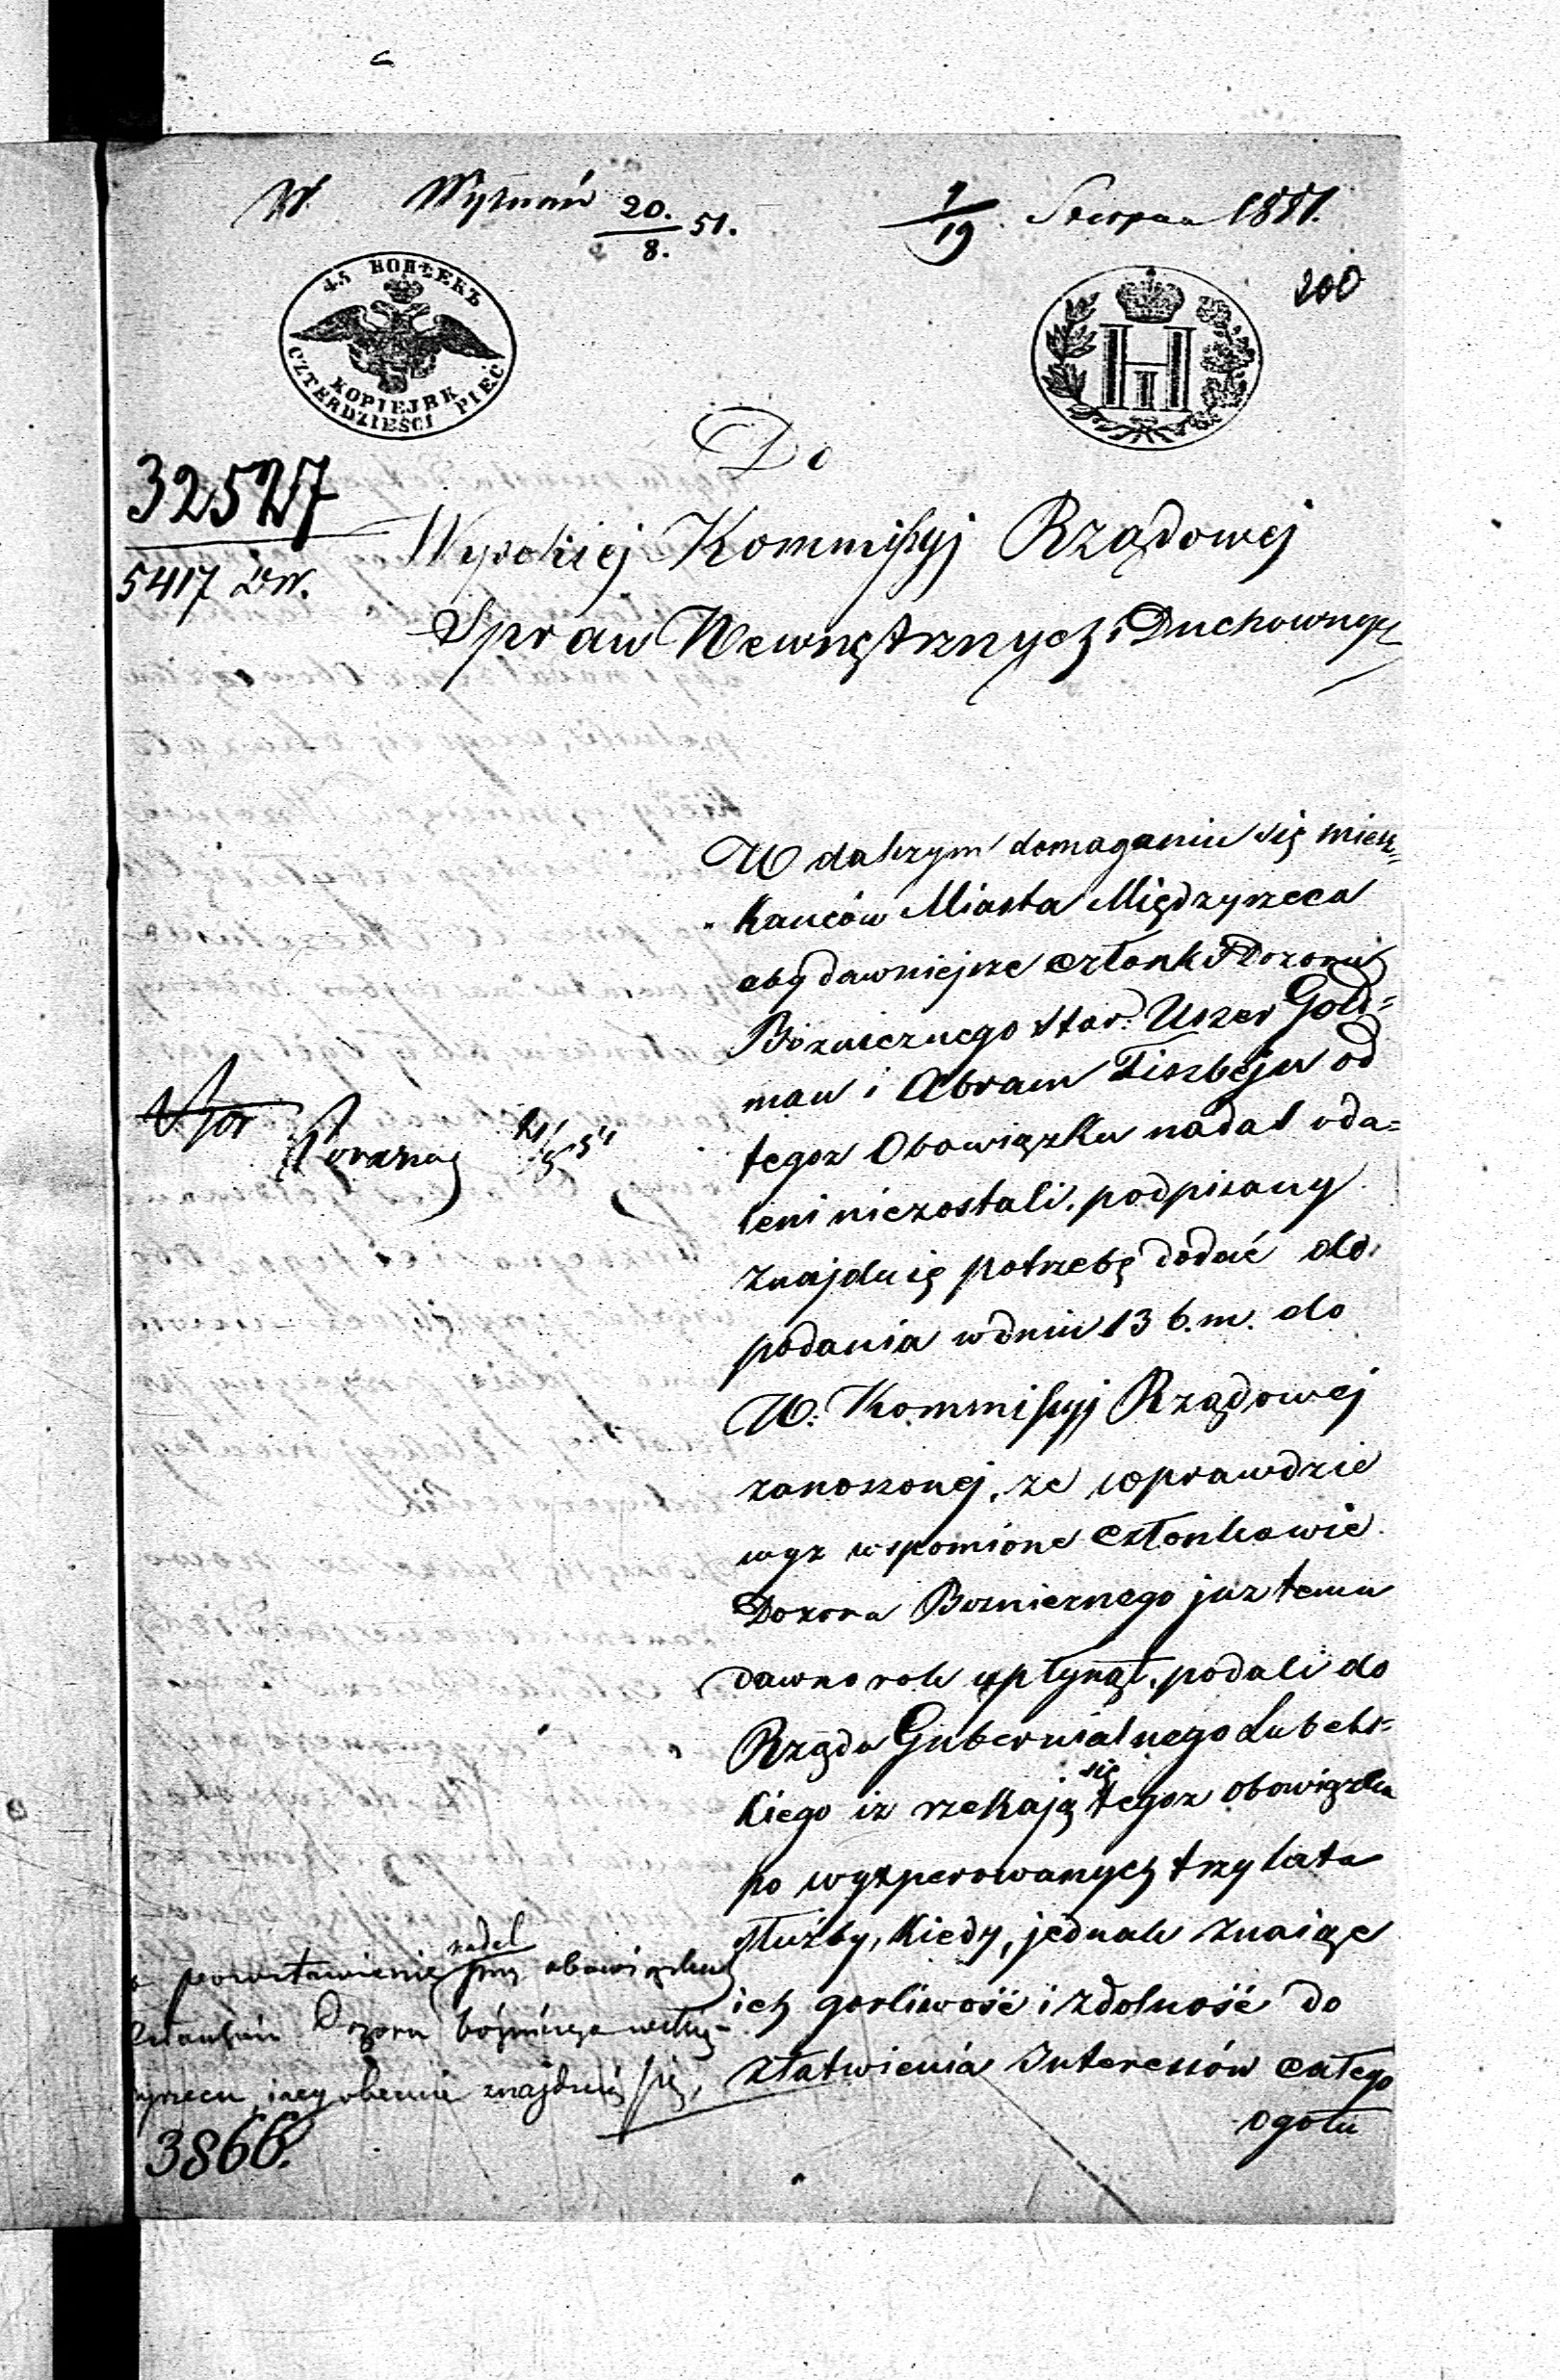 W. Wyznań 20./8. 51.
7/19 Sierpnia 1851.
200
45 КОПѢЕКЪ
KOPIEJEK
CZTERDZIEŚCI PIĘĆ
Н I
32527
5417
Do
Wysokiej Kommissyj Rządowej
Spraw Wewnętrznych i Duchownych
W dalszym domaganiu się miesz=
kańców Miasta Międzyrzeca
aby dawniejsze członki Dozoru
Bóżnicznego Star: Uszer Gold=
man i Abram Fiszbejn od
tegoz Obowiązku nadal oda=
leni niezostali, podpisany
znajduię potrzebę dodać do
podania w dniu 13 b.m. do
W: Kommissyj Rządowej
zanoszonej, ze wprawdzie
wyz wspomione członkowie
Dozoru Boznicznego juz temu
dawno rok upłynął, podali do
Rządu Gubernialnego Lubels=
kiego iz rzekają się tegoz obowiązku
po wyxperowanych trzy lata
służby, kiedy, jednak znaiąc
ich gorliwość i zdolność do
złatwienia Interessów całego
ogołu
21/8 51
o pozostawienie nadal przy obowiązku
Dozoru bóżnicze
obecnie znajdują się,
3866.